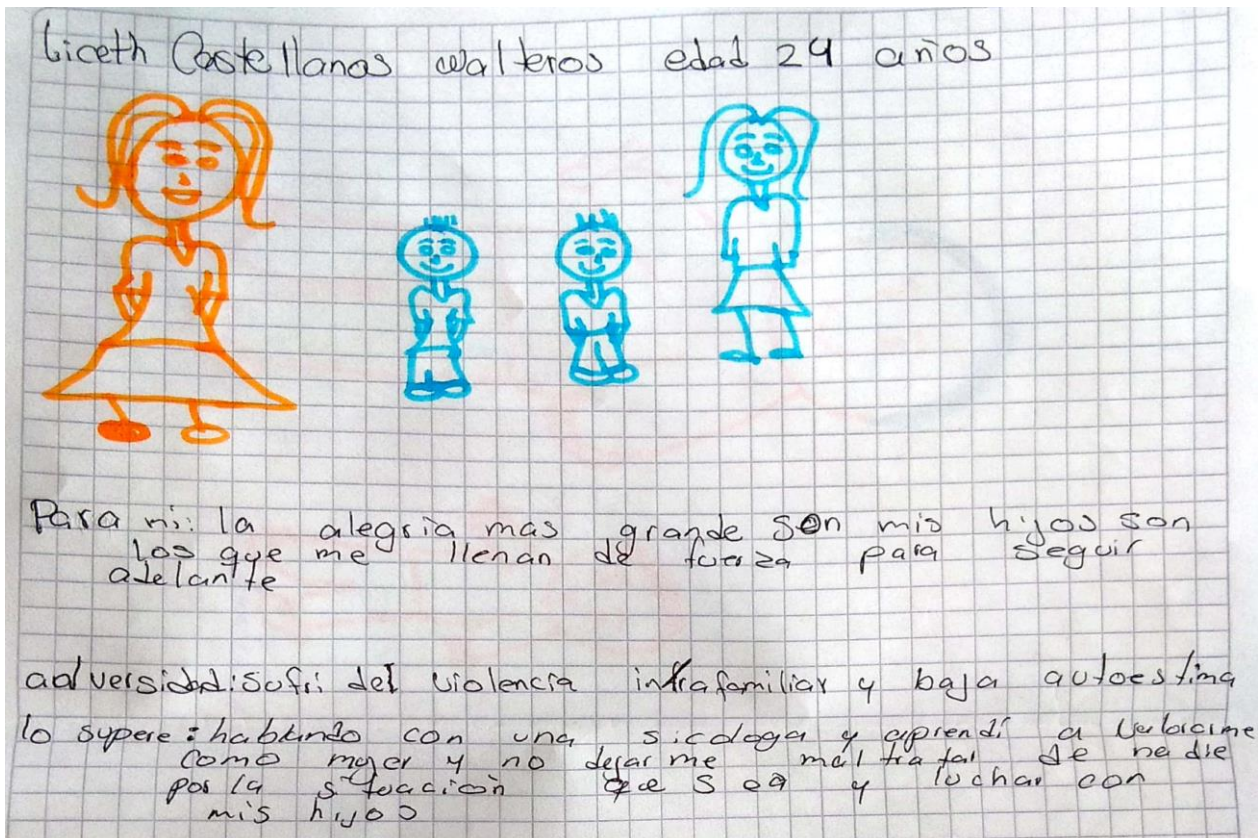 Liceth Castellanos walteros edad 24 años
Para mi: la alegria mas grande son mis hijos son
los que me llenan de fuerza para seguir
adelante
adversidad: sufri del violencia intrafamiliar y baja autoestima
lo supere: hablando con una sicologa y aprendi a
como mujer y no dejarme maltratar de nadie
por la situacion que sea y luchar con
mis hijos